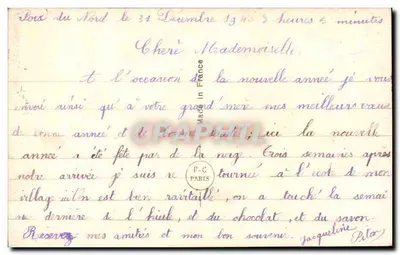 du Nord le 31 Décembre 19 3 heures minutes
Cherè Mademoiselle.
A l'occasion de la nouvelle anneé je vous
envoie ainsi qu'à votre grand'mère mes meilleurs vœux
de bonne anneé et de bonne santé, ici la nouvelle
anneé a été fete par de la neige. Trois semaines apres
notre arriveé je suis retourneé à l'école de mon
village on est bien ravitaillé, on a touché la semai
ne dernière de l'huile, et du chocolat, et du savon
Recevez mes amitiés et mon bon souvenir. Jacqueline
Made in France
P-C
PARIS